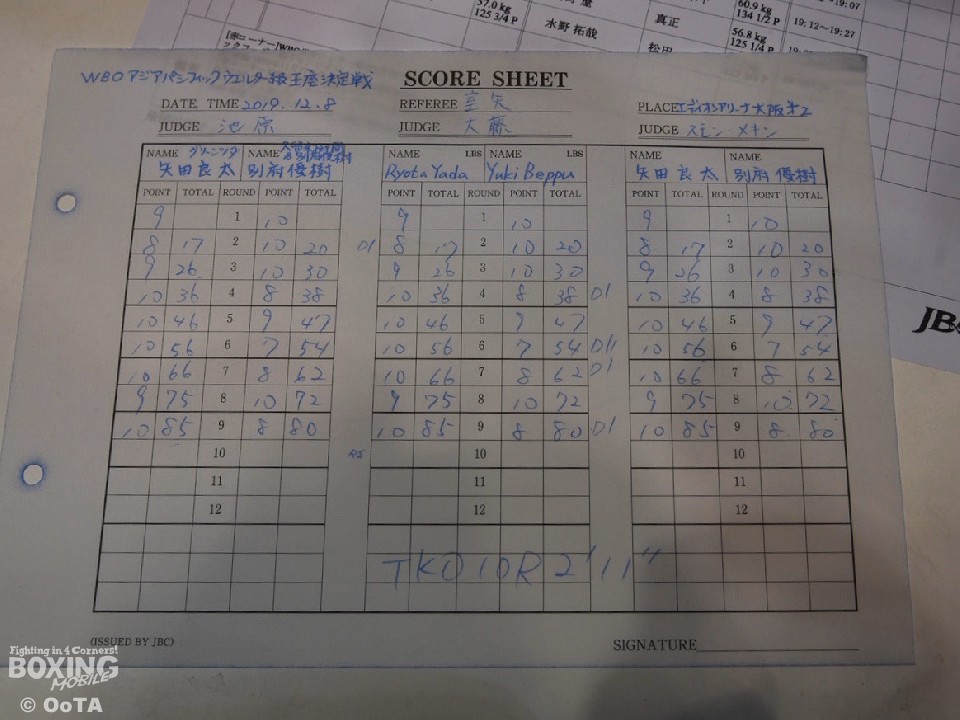 57.0 kg
125 3/4 P
水野 拓哉
真正
60.9 kg
134 1/2 P
56.8 kg
125 1/4 P
19:12~19:27
JB
WBOアジアパシフィックウェルター級王座決定戦
SCORE SHEET
DATE TIME 2019.12.8 REFEREE PLACE エディオンアリーナ大阪第2
JUDGE 池原 JUDGE 大藤 JUDGE
NAME NAME NAME LBS NAME LBS NAME NAME
矢田良太 別府優樹 Ryota Yada Yuki Beppu 矢田良太 別府優樹
POINT TOTAL ROUND POINT TOTAL POINT TOTAL ROUND POINT TOTAL POINT TOTAL ROUND POINT TOTAL
9 1 10 9 1 10 9 1 10
8 17 2 10 20 D1 8 17 2 10 20 8 17 2 10 20
9 26 3 10 30 9 26 3 10 30 9 26 3 10 30
10 36 4 8 38 10 36 4 8 38 D1 10 36 4 8 38
10 46 5 9 47 10 46 5 9 47 10 46 5 9 47
10 56 6 7 54 10 56 6 7 54 D11 10 56 6 7 54
10 66 7 8 62 10 66 7 8 62 D1 10 66 7 8 62
9 75 8 10 72 9 75 8 10 72 9 75 8 10 72
10 85 9 8 80 10 85 9 8 80 D1 10 85 9 8 80
10 10 10
11 11 11
12 12 12
TKO 10R 2'11"
(ISSUED BY JBC) SIGNATURE
Fighting in 4 Corners!
BOXING
MOBILE
© OoTA